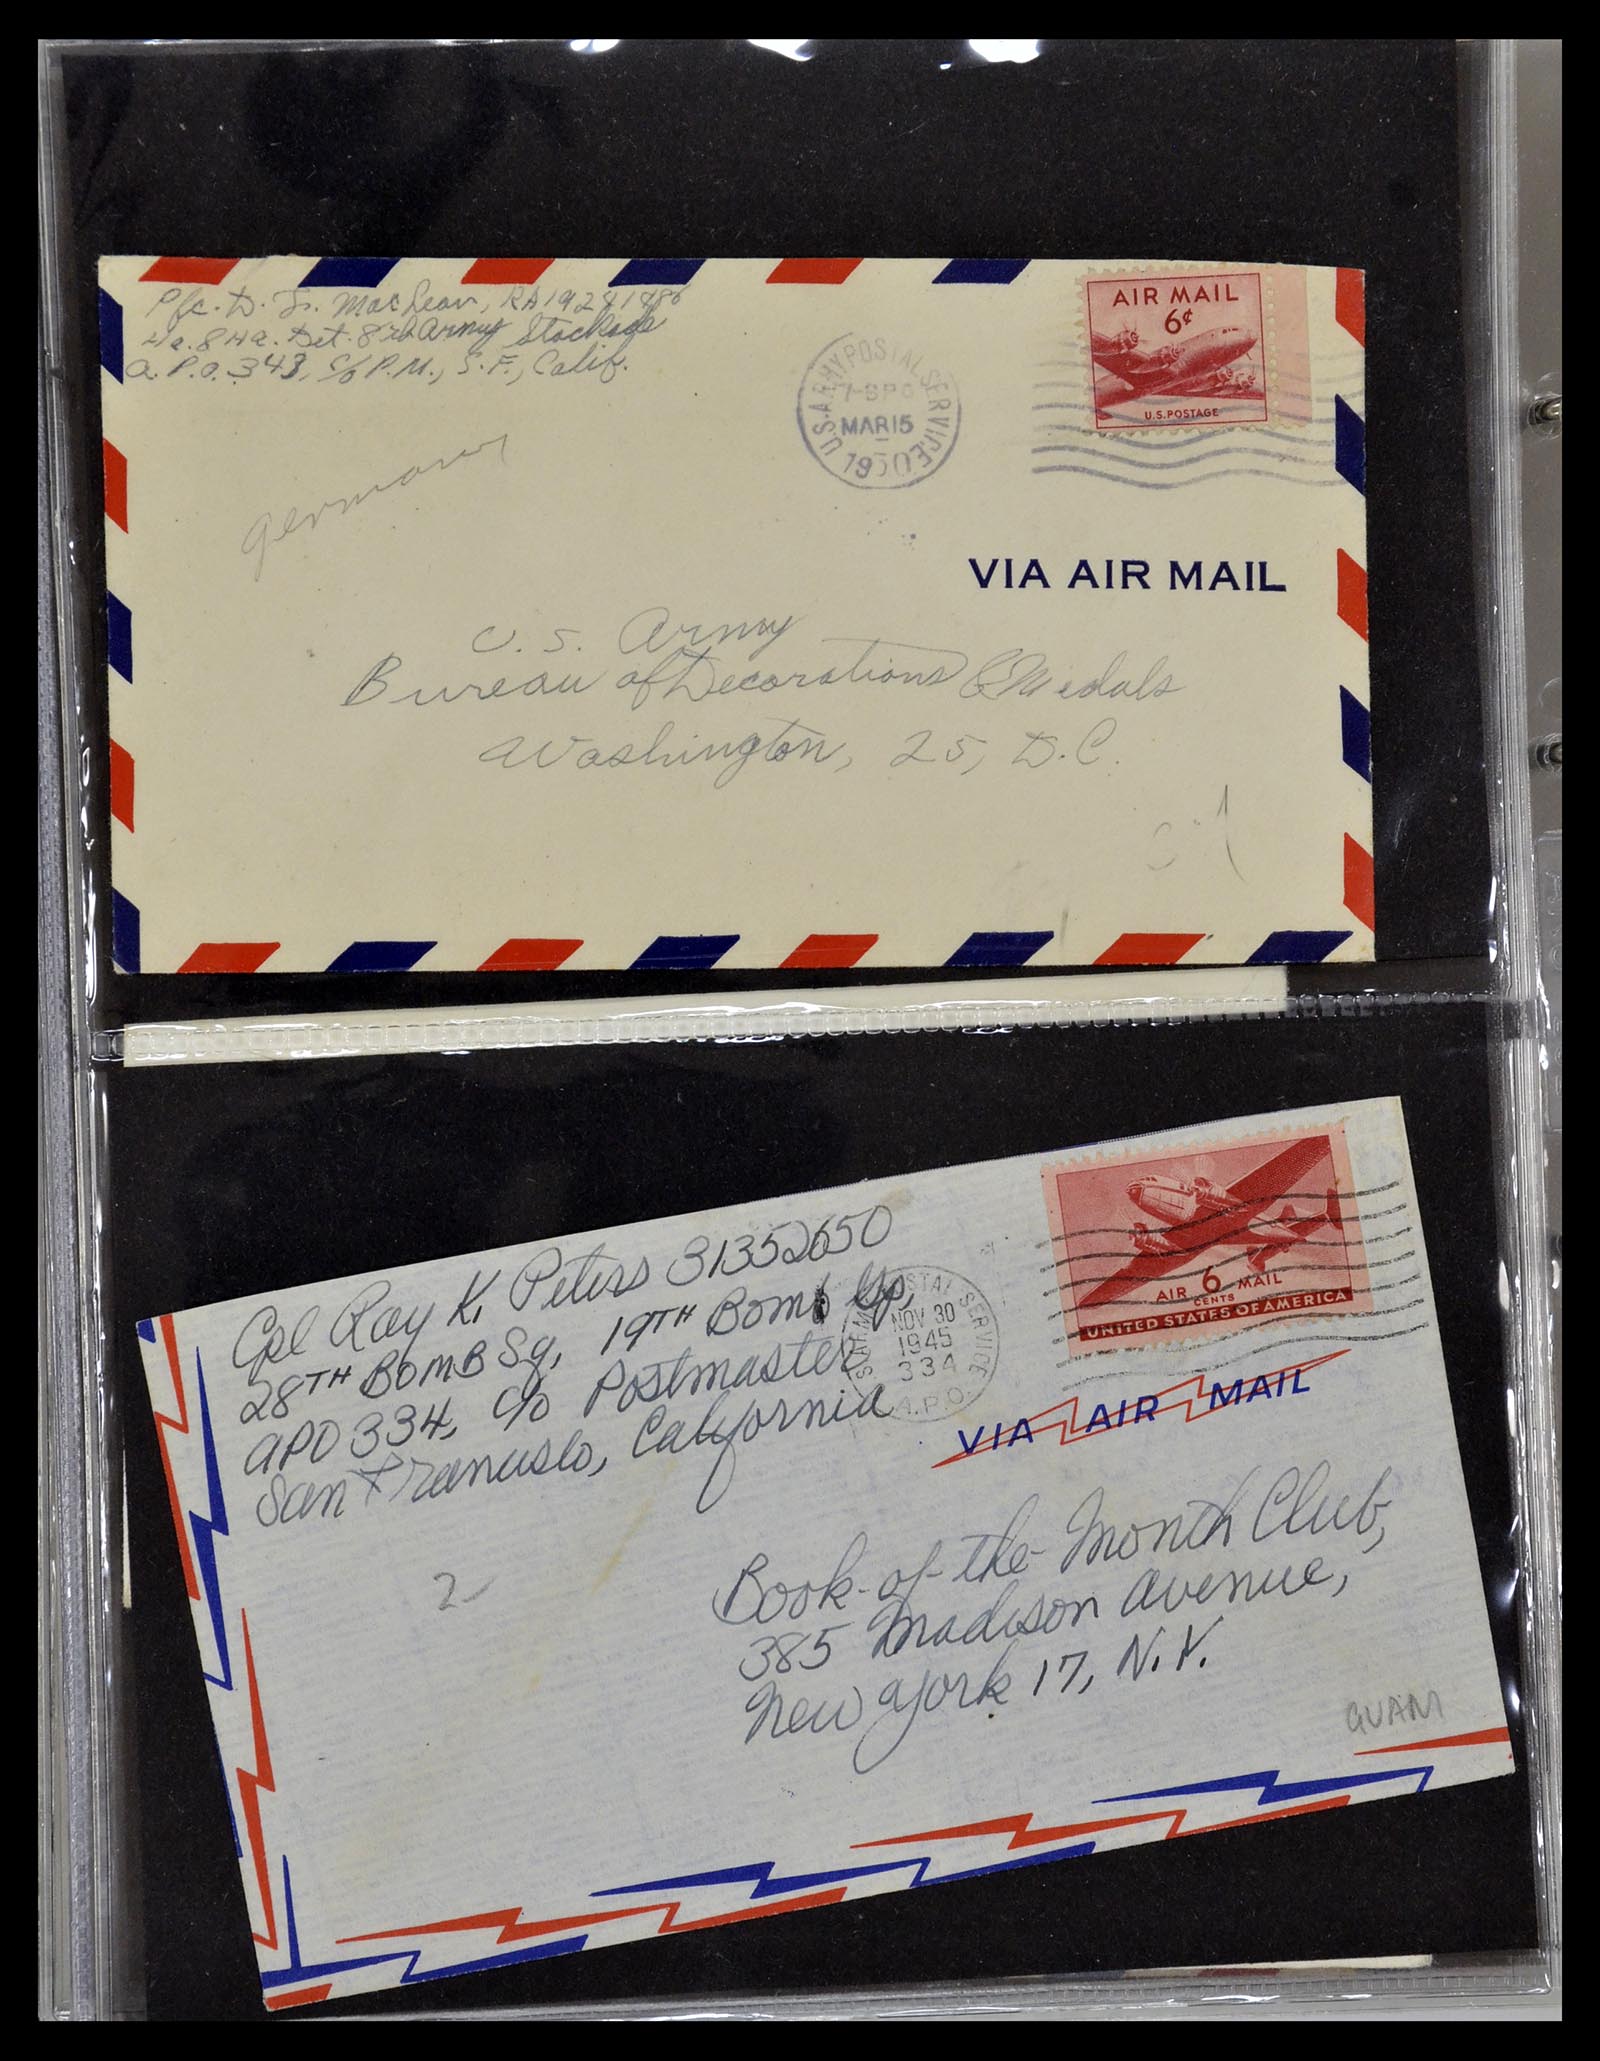 Pfc. D. Mac Lean, RA19241486
Hq. & Hq. Det. 8th Army Stockade
A.P.O. 343, c/o P.M., S.F., Calif.
AIR MAIL
6¢
U.S. POSTAGE
U.S. ARMY POSTAL SERVICE
MAR 15
1950
Germany
VIA AIR MAIL
U.S. Army
Bureau of Decorations & Medals
Washington, 25, D.C.
Cpl Ray K. Peters 31352650
28TH BOMB Sq, 19TH BOMB Gp,
APO 334, c/o Postmaster
San Francisco, California
POSTAL SERVICE
NOV 30
1945
334
A.P.O.
AIR 6 MAIL
CENTS
UNITED STATES OF AMERICA
VIA AIR MAIL
2
Book-of-the-Month Club,
385 Madison Avenue,
New York 17, N.Y.
GUAM